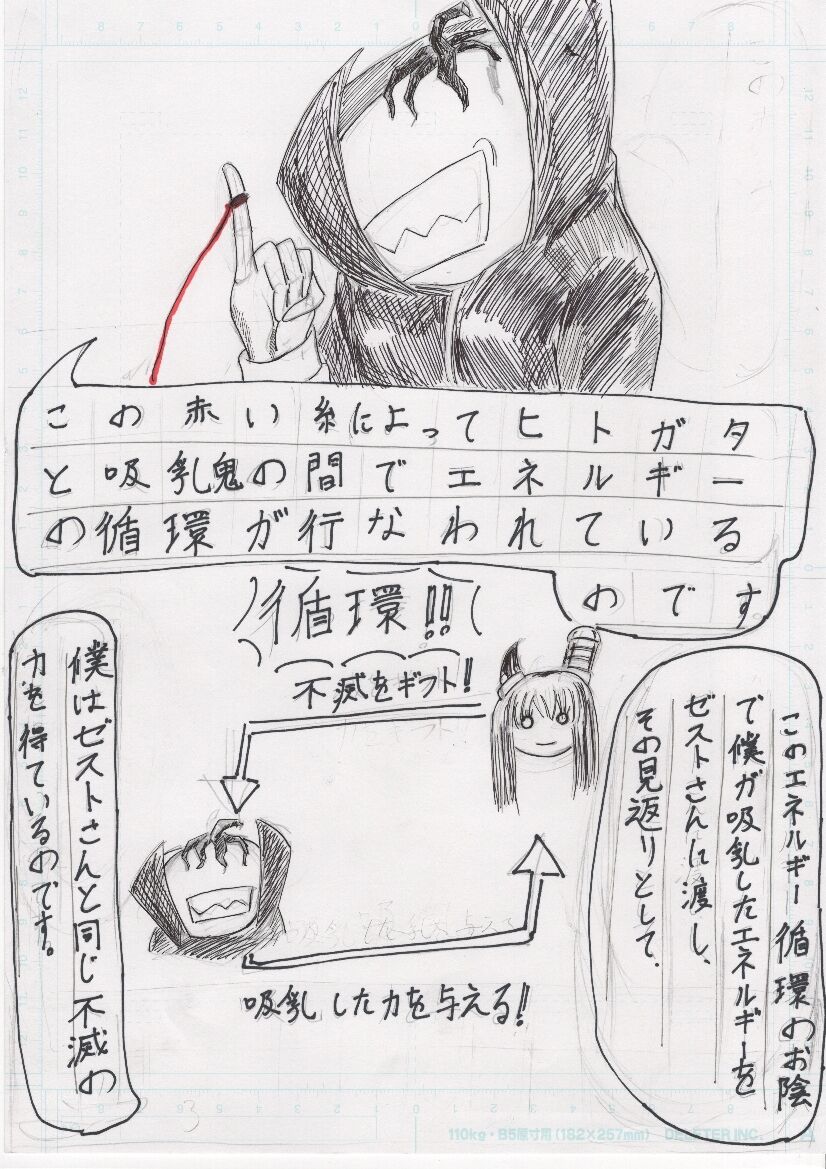 この赤い糸によってヒトガタ
と吸乳鬼の間でエネルギー
の循環が行なわれている
のです。
循環!!
不滅をギフト!
このエネルギー循環のお陰
で僕が吸乳したエネルギーを
ゼストさんに渡し、
その見返りとして、
吸乳した力を与える!!
僕はゼストさんと同じ不滅の
力を得ているのです。
110kg・B5原寸用(182×257mm) DELETER INC.